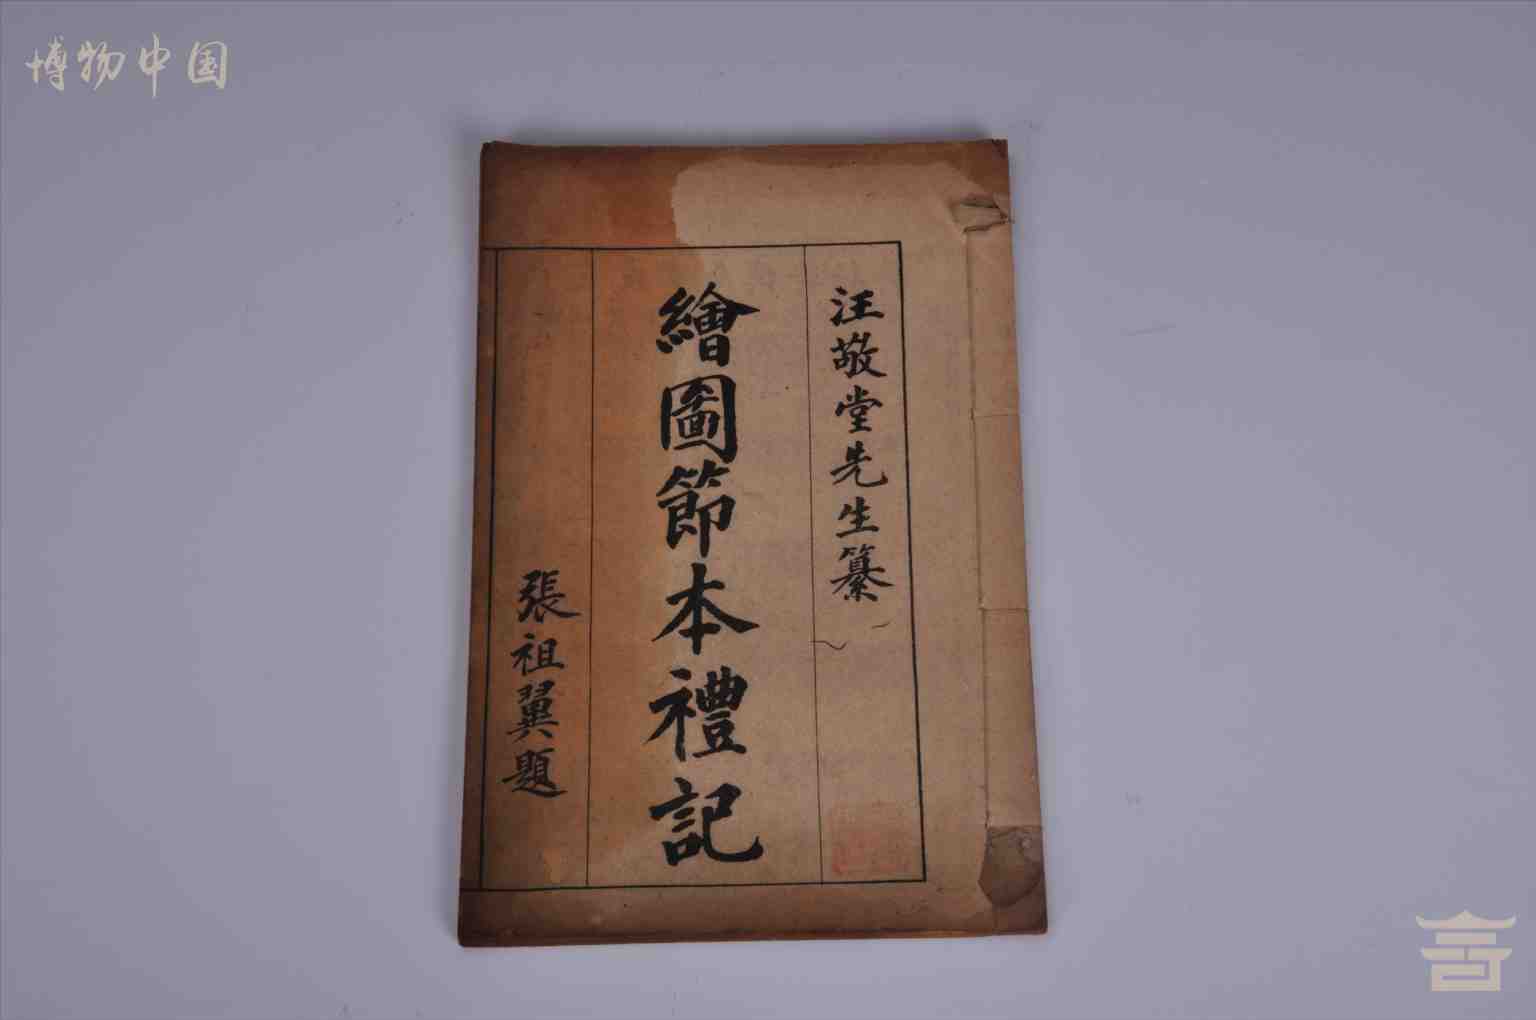 博物中国
汪敬堂先生纂
繪圖節本禮記
張祖翼題